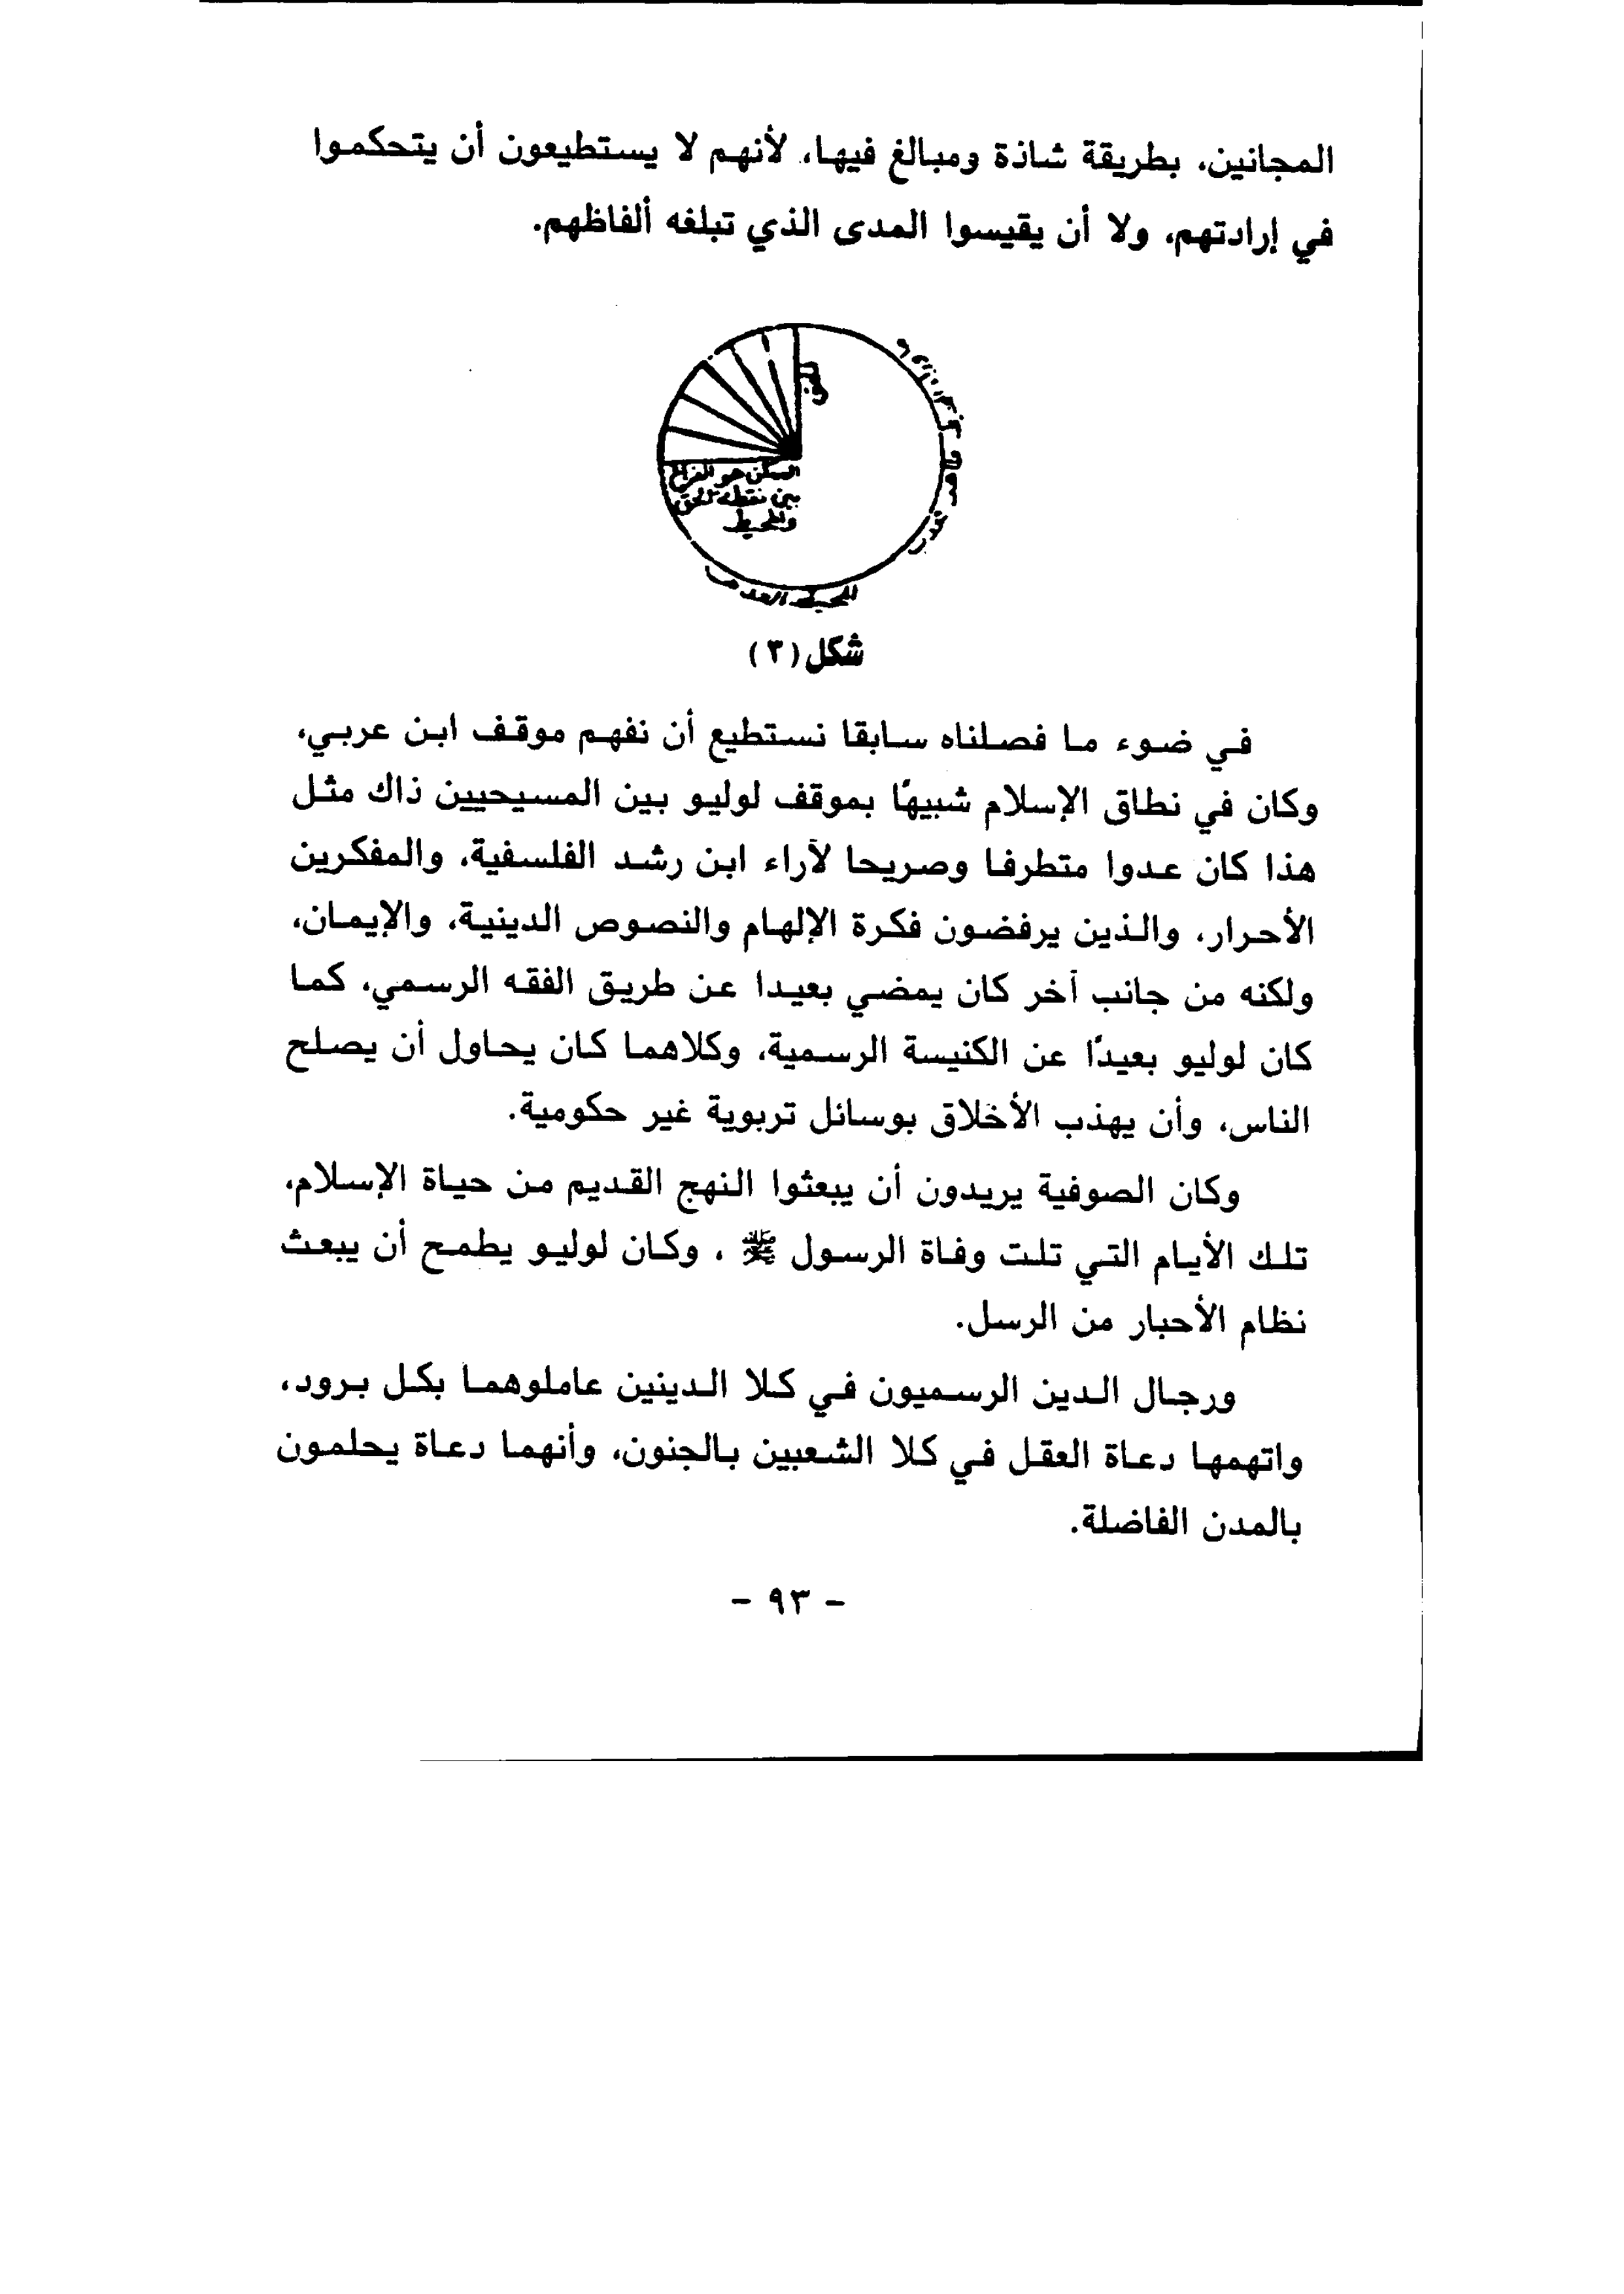 المجانين، بطريقة شاذة ومبالغ فيها، لأنهم لا يستطيعون أن يتحكموا
في إرادتهم، ولا أن يقيسوا المدى الذي تبلغه ألفاظهم.
الممكن هو الفراغ
بين نقطة الحق
والمحيط
المحيط
شكل (٣)
في ضوء ما فصلناه سابقا نستطيع أن نفهم موقف ابن عربي،
وكان في نطاق الإسلام شبيهًا بموقف لوليو بين المسيحيين ذاك مثل
هذا كان عدوا متطرفا وصريحا لآراء ابن رشد الفلسفية، والمفكرين
الأحرار، والذين يرفضون فكرة الإلهام والنصوص الدينية، والإيمان،
ولكنه من جانب آخر كان يمضي بعيدا عن طريق الفقه الرسمي، كما
كان لوليو بعيدًا عن الكنيسة الرسمية، وكلاهما كان يحاول أن يصلح
الناس، وأن يهذب الأخلاق بوسائل تربوية غير حكومية.
وكان الصوفية يريدون أن يبعثوا النهج القديم من حياة الإسلام،
تلك الأيام التي تلت وفاة الرسول ﷺ ، وكان لوليو يطمح أن يبعث
نظام الأحبار من الرسل.
ورجال الدين الرسميون في كلا الدينين عاملوهما بكل برود،
واتهمها دعاة العقل في كلا الشعبين بالجنون، وأنهما دعاة يحلمون
بالمدن الفاضلة.
- ٩٣ -